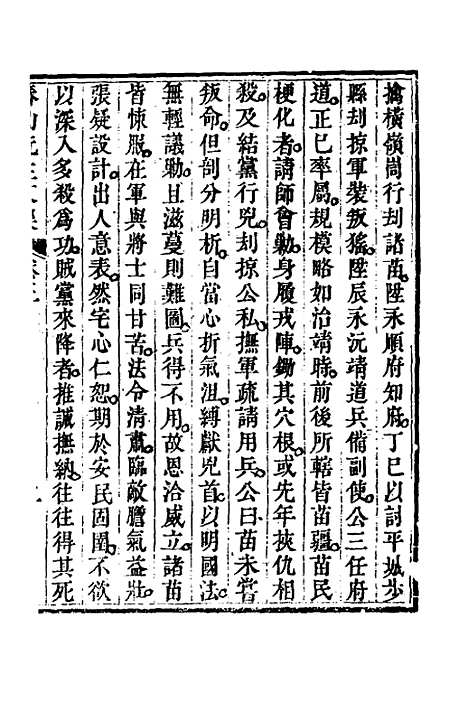 擒橫嶺峝行刦諸苗陞永順府知府丁巳以討平城步
縣刦掠軍裝叛猺陞辰永沅靖道兵備副使公三任府
道正已率屬規模略如治靖時前後所轄皆苗疆苗民
梗化者請師會勦身履戎陣鋤其穴根或先年挾仇相
殺及結黨行兇刦掠公私撫軍疏請用兵公曰苗未嘗
叛命但剖分明析自當心折氣沮縛獻兇首以明國法
無輕議勦且滋蔓則難圖兵得不用故恩洽威立諸苗
皆悚服在軍與將士同甘苦法令清肅臨敵膽氣益壯
張疑設計出人意表然宅心仁恕期於安民固圉不欲
以深入多殺爲功賊黨來降者推誠撫納往往得其死